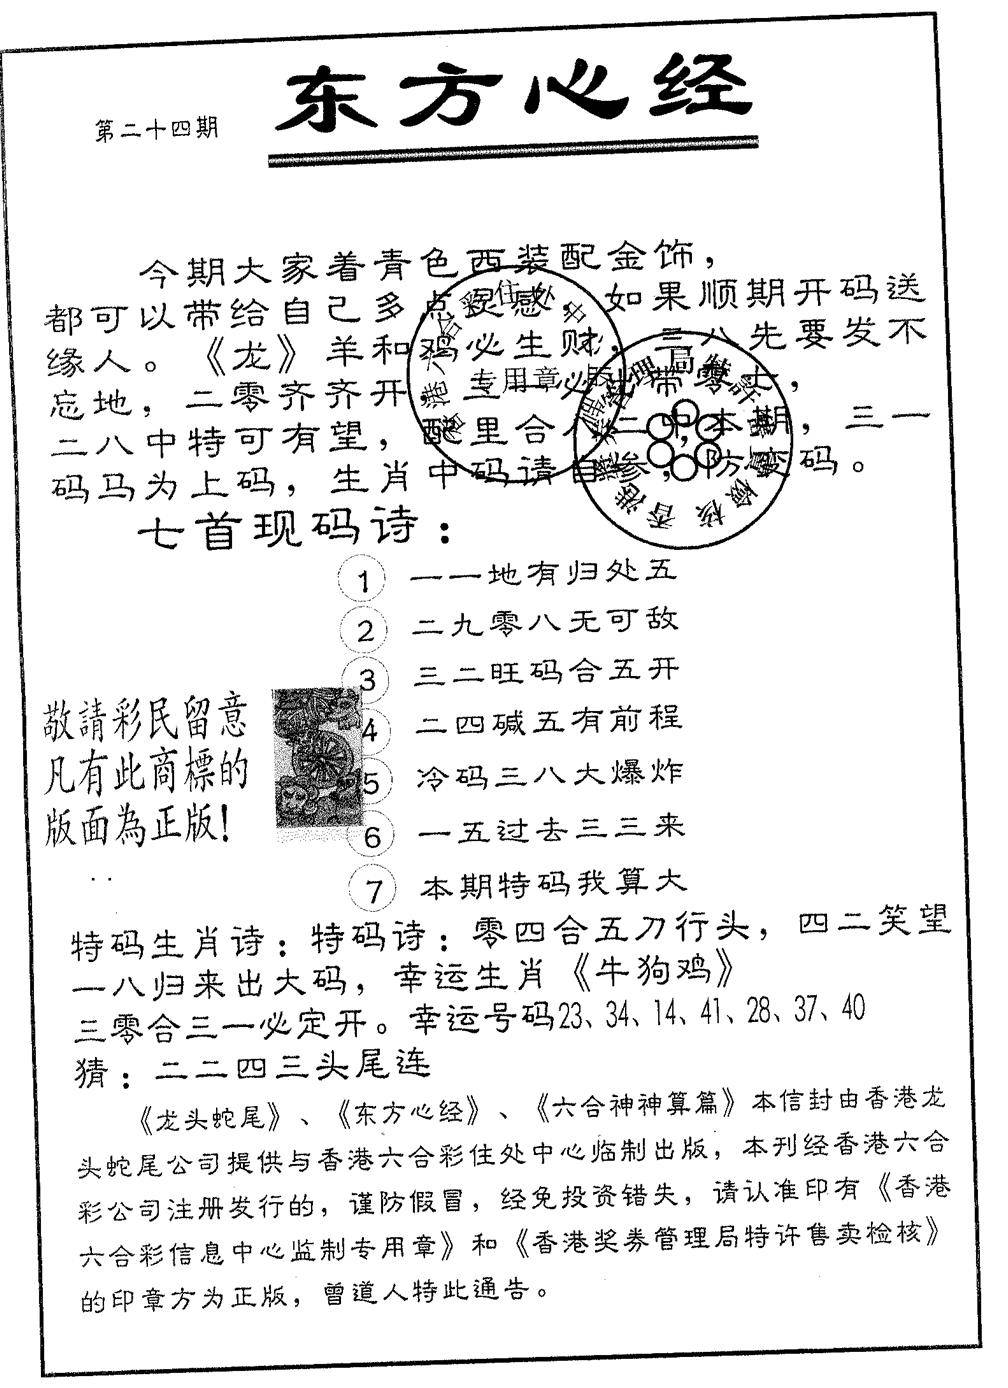 东方心经
第二十四期
今期大家着青色西装配金饰，
都可以带给自己多点灵感。如果顺期开码送
缘人。《龙》羊和鸡必生财，三八先要发不
忘地，二零齐齐开，三一必出带零七，
二八中特可有望，配里合八二中本期，三一
码马为上码，生肖中码请自参，防变码。
专用章
七首现码诗：
1 一一地有归处五
2 二九零八无可敌
3 三二旺码合五开
4 二四碱五有前程
5 冷码三八大爆炸
6 一五过去三三来
7 本期特码我算大
敬請彩民留意
凡有此商標的
版面為正版！
特码生肖诗：特码诗：零四合五刀行头，四二笑望
一八归来出大码，幸运生肖《牛狗鸡》
三零合三一必定开。幸运号码23、34、14、41、28、37、40
猜：二二四三头尾连
《龙头蛇尾》、《东方心经》、《六合神神算篇》本信封由香港龙
头蛇尾公司提供与香港六合彩住处中心临制出版，本刊经香港六合
彩公司注册发行的，谨防假冒，经免投资错失，请认准印有《香港
六合彩信息中心监制专用章》和《香港奖券管理局特许售卖检核》
的印章方为正版，曾道人特此通告。